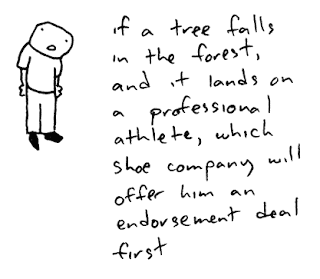 if a tree falls
in the forest,
and it lands on
a professional
athlete, which
shoe company will
offer him an
endorsement deal
first